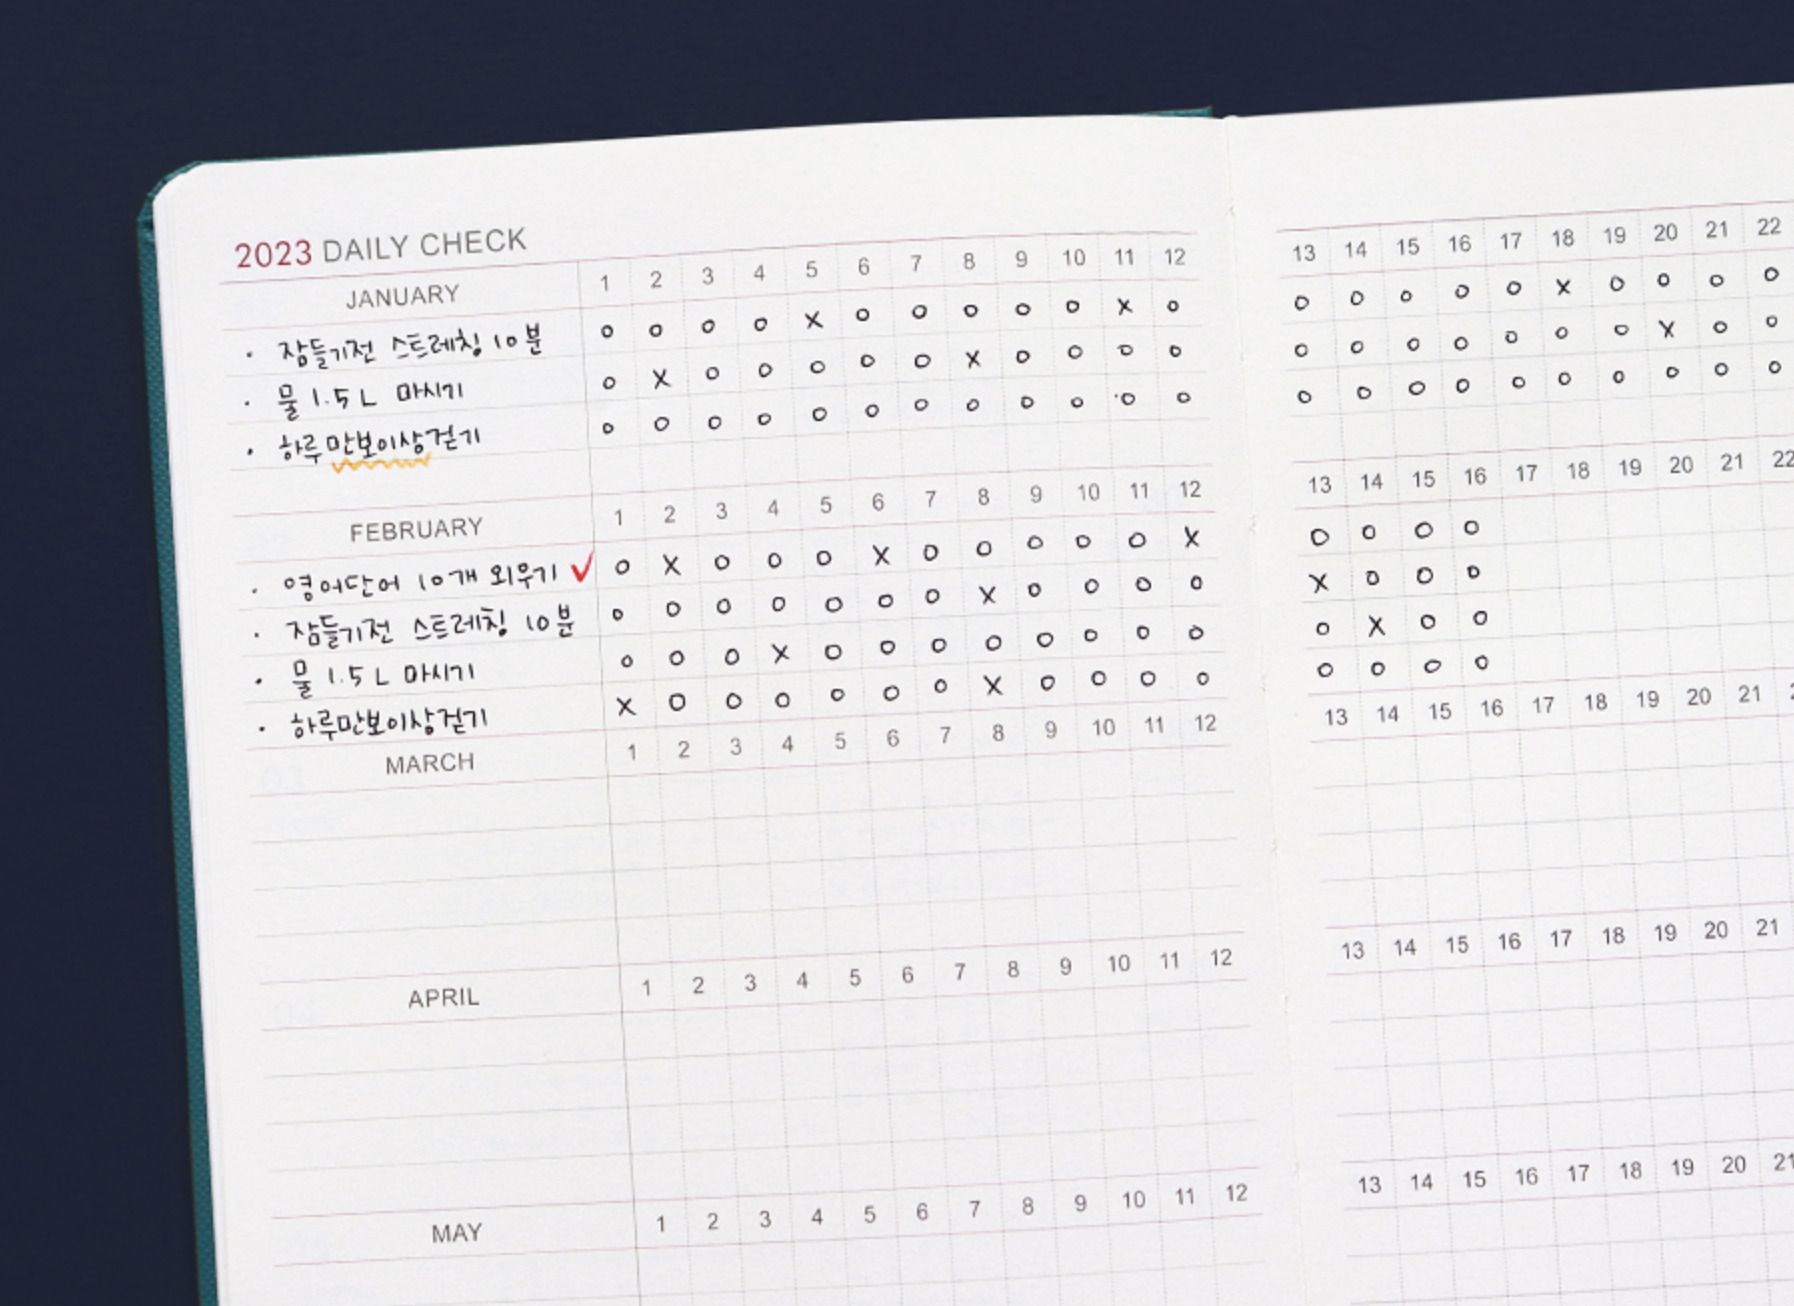 2023 DAILY CHECK
JANUARY 1 2 3 4 5 6 7 8 9 10 11 12 13 14 15 16 17 18 19 20 21 22
· 잠들기전 스트레칭 10분 o o o o x o o o o o x o o o o o o x o o o o
· 물 1.5L 마시기 o x o o o o o x o o o o o o o o o o o x o o
· 하루만보이상걷기 o o o o o o o o o o o o o o o o o o o o o o
FEBRUARY 1 2 3 4 5 6 7 8 9 10 11 12 13 14 15 16 17 18 19 20 21 22
· 영어단어 10개 외우기 ✓ o x o o o x o o o o o x o o o o
· 잠들기전 스트레칭 10분 o o o o o o o x o o o o x o o o
· 물 1.5L 마시기 o o o x o o o o o o o o o x o o
· 하루만보이상걷기 x o o o o o o x o o o o o o o o
MARCH 1 2 3 4 5 6 7 8 9 10 11 12 13 14 15 16 17 18 19 20 21
APRIL 1 2 3 4 5 6 7 8 9 10 11 12 13 14 15 16 17 18 19 20 21
MAY 1 2 3 4 5 6 7 8 9 10 11 12 13 14 15 16 17 18 19 20 21